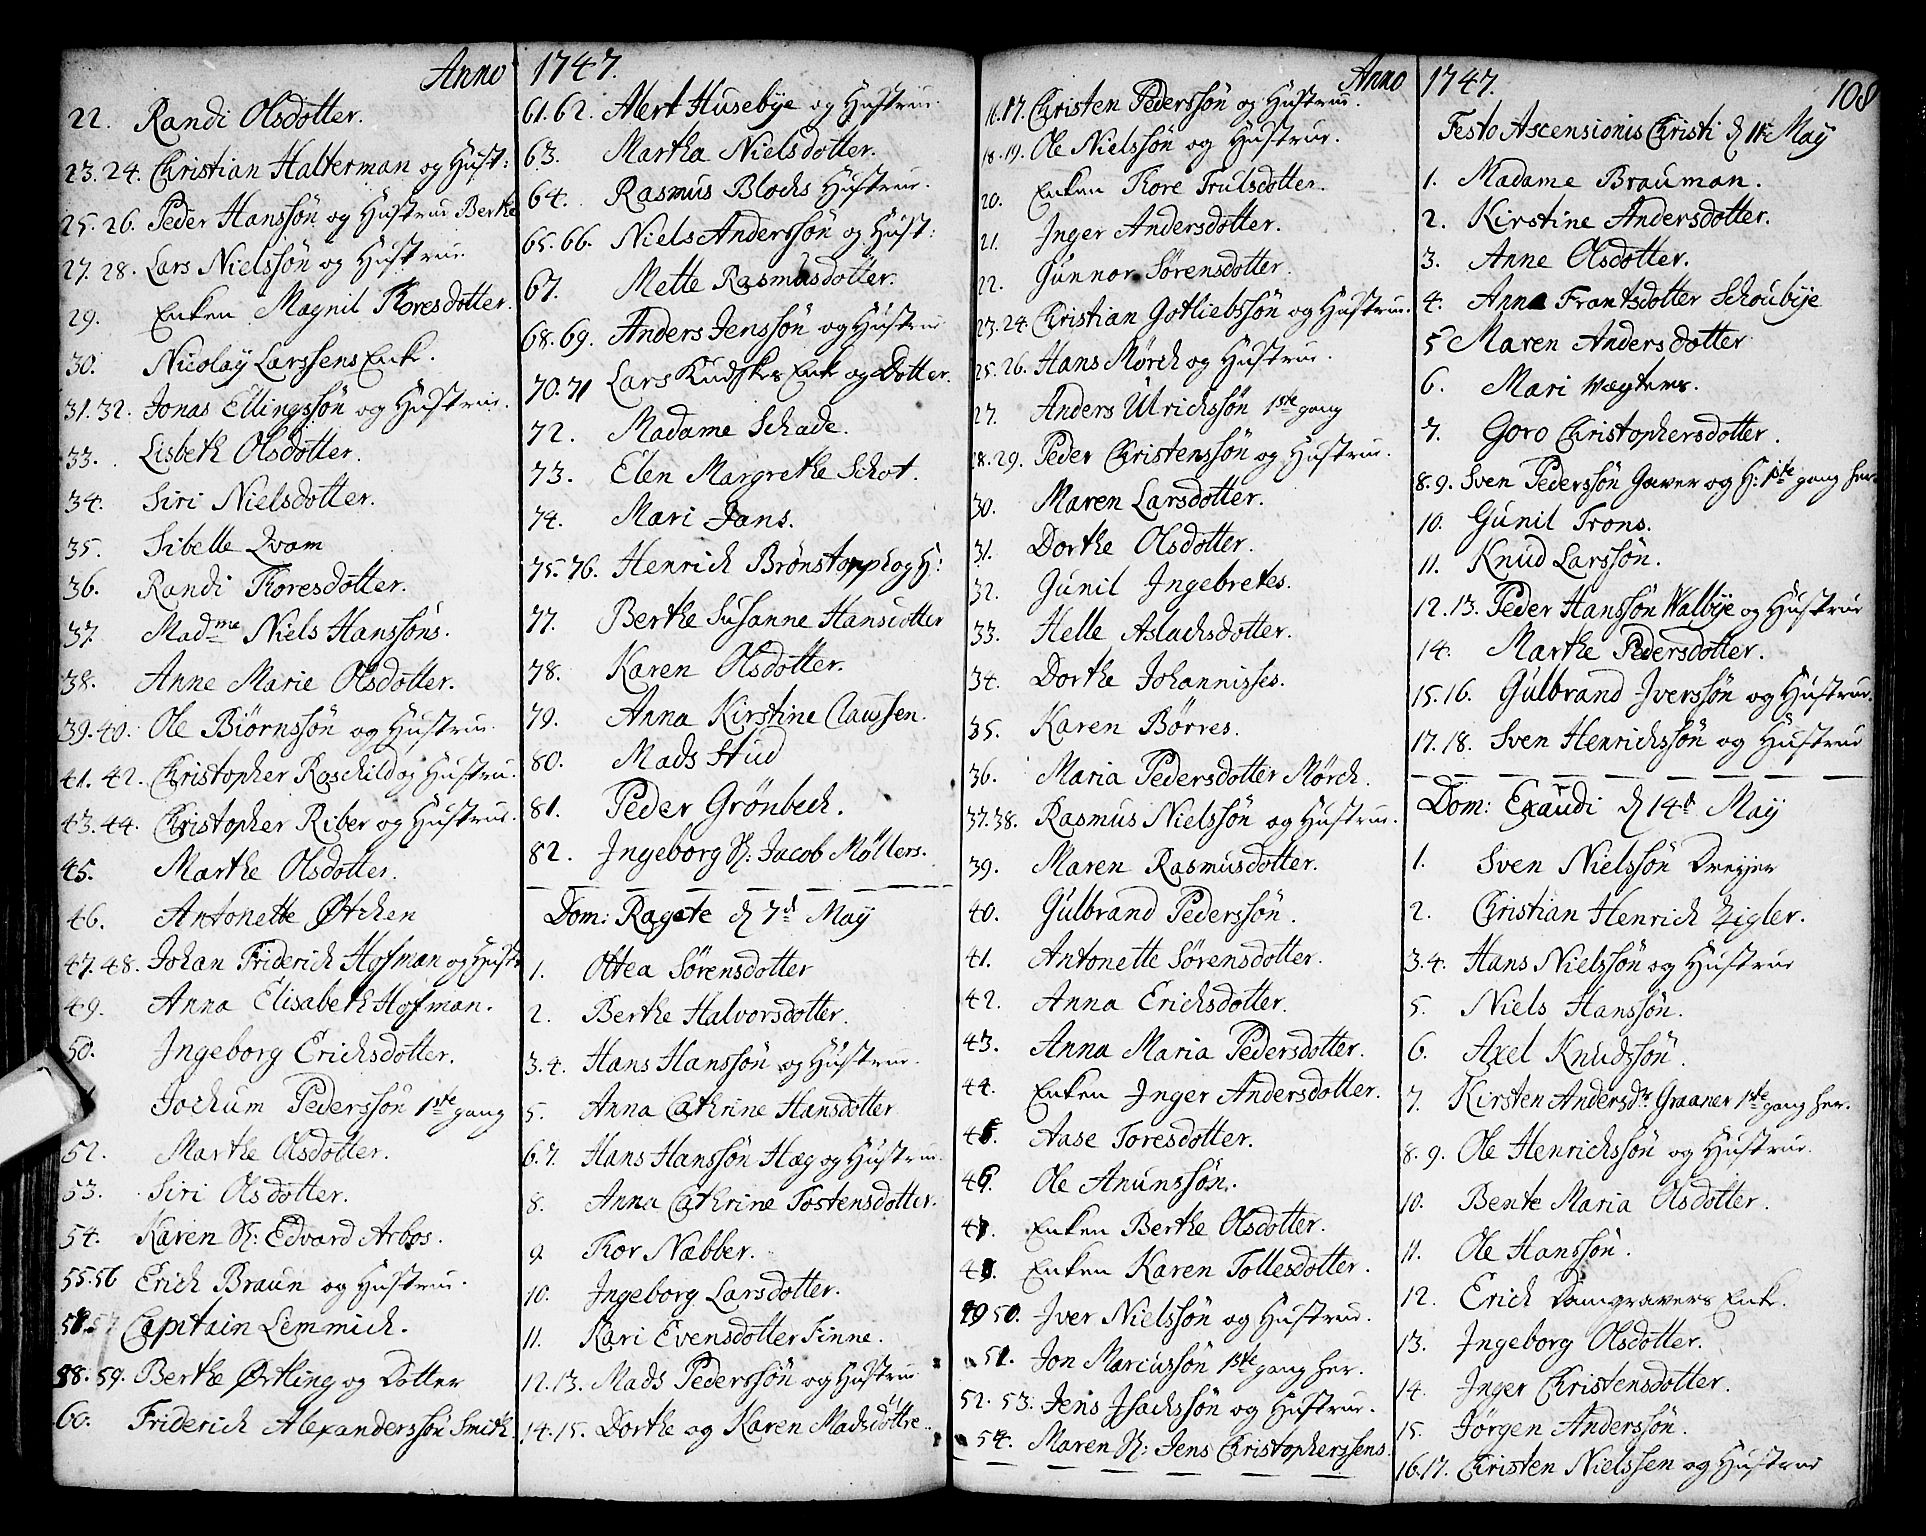 Anno
22. Randi Olsdotter.
23. 24. Christian Halterman og Hust:
25. 26. Peder Hanssøn og Hustrue Berthe
27. 28. Lars Nielssøn og Hustrue
29. Enken Magnil Thoresdotter.
30. Nicolaÿ Larssens Enke.
31. 32. Jonas Ellingssøn og Hustrue.
33. Lisbeth Olsdotter.
34. Siri Nielsdotter.
35. Sibelle Qvam
36. Randi Thoresdotter.
37. Madme Niels Hanssøns.
38. Anne Marie Olsdotter.
39. 40. Ole Biørnssøn og Hustrue.
41. 42. Christopher Raschild og Hustru.
43. 44. Christopher Riber og Hustrue.
45. Marthe Olsdotter.
46. Antonette Øtchen
47. 48. Johan Friderich Hofman og Hustr
49. Anna Elisabeth Hofman.
50. Ingeborg Erichsdotter.
Jochum Pederssøn 1ste gang
52. Marthe Olsdotter.
53. Siri Olsdotter.
54. Karen H: Edvard Arbos.
55. 56 Erich Braun og Hustrue.
Capitain Lemmich.
58. 59. Berthe Ørtling og Dotter
60. Friderich Alexanderssøn Smith.
1747.
61. 62. Alert Husebye og Hustrue.
63. Martha Nielsdotter.
64. Rasmus Blochs Hustrue.
65. 66. Niels Anderssøn og Hust:
67. Mette Rasmusdotter.
68. 69. Anders Jenssøn og Hustrue
70. 71 Lars Kudskes Enke og Dotter.
72. Madame Schade.
73. Elen Margrethe Schot.
74. Mari Jans.
75. 76. Henrich Brønstorph og H:
77. Berthe Susanne Hansdotter
78. Karen Olsdotter.
79. Anna Kirstine Claussen.
80. Mads Stud
81. Peder Grønbech.
82. Ingeborg H: Jacob Møllers.
Dom: Rogate d 7d May
1. Ottea Sørensdotter
2. Berthe Halvorsdotter.
3. 4. Hans Hanssøn og Hustrue.
5. Anna Cathrine Hansdotter
6. 7. Hans Hanssøn Hæg og Hustrue.
8. Anna Cathrine Tostensdotter.
9. Thor Næbber.
10. Ingeborg Larsdotter.
11. Kari Evensdotter Finne.
12. 13. Mads Pederssøn og Hustrue
14. 15. Dorthe og Karen Madsdøttre.
Anno
16. 17. Christen Pederssøn og Hustrue.
18. 19. Ole Nielssøn og Hustrue.
20. Enken Thore Trulsdotter.
21. Inger Andersdotter.
22. Gunnor Sørensdotter.
23. 24. Christian Gotliebssøn og Hustrue.
25. 26. Hans Mørch og Hustrue.
27. Anders Ulrichssøn 1ste gang
28. 29. Peder Christenssøn og Hustrue.
30. Maren Larsdotter.
31. Dorthe Olsdotter.
32. Gunil Ingebretes.
33. Helle Aslachsdotter.
34. Dorthe Johannisses.
35. Karen Børres.
36. Maria Pedersdotter Mørch.
37. 38. Rasmus Nielssøn og Hustrue.
39. Maren Rasmusdotter.
40. Gulbrand Pederssøn.
41. Antonette Sørensdotter.
42. Anna Erichsdotter.
43. Anna Maria Pedersdotter.
44. Enken Inger Andersdotter.
45. Aase Toresdotter.
46. Ole Anunssøn.
47. Enken Berthe Olsdotter.
48. Enken Karen Tollesdotter.
49 50. Iver Nielssøn og Hustrue.
51. Jon Marcussøn 1ste gang her.
52. 53: Jens Isachssøn og Hustrue.
54. Maren H: Jens Christopherssens.
1747.
108
Festo Ascensionis Christi d 11te May
1. Madame Brauman.
2. Kirstine Andersdotter.
3. Anne Olsdotter.
4. Anna Frantsdotter Schoubye
5 Maren Andersdotter
6. Mari Vægters.
7. Goro Christophersdotter.
8. 9. Sven Pederssøn Garver og H: 1ste gang her.
10. Gunil Trons.
11. Knud Larssøn.
12. 13. Peder Hanssøn Walbye og Hustrue
14. Marthe Pedersdotter.
15. 16. Gulbrand Iverssøn og Hustrue.
17. 18. Sven Henrichssøn og Hustrue
Dom: Exaudi d 14d May
1. Sven Nielssøn Dreyer
2. Christian Henrich Zigler.
3. 4. Hans Nielssøn og Hustrue
5. Niels Hanssøn.
6. Axel Knudssøn.
7. Kirsten Andersdr. Graaner 1ste gang her.
8. 9. Ole Henrichssøn og Hustrue.
10. Bente Maria Olsdotter.
11. Ole Hanssøn.
12. Erich Damgravers Enke.
13. Ingeborg Olsdotter.
14. Inger Christensdotter.
15. Jørgen Anderssøn.
16. 17. Christen Nielssen og Hustrue